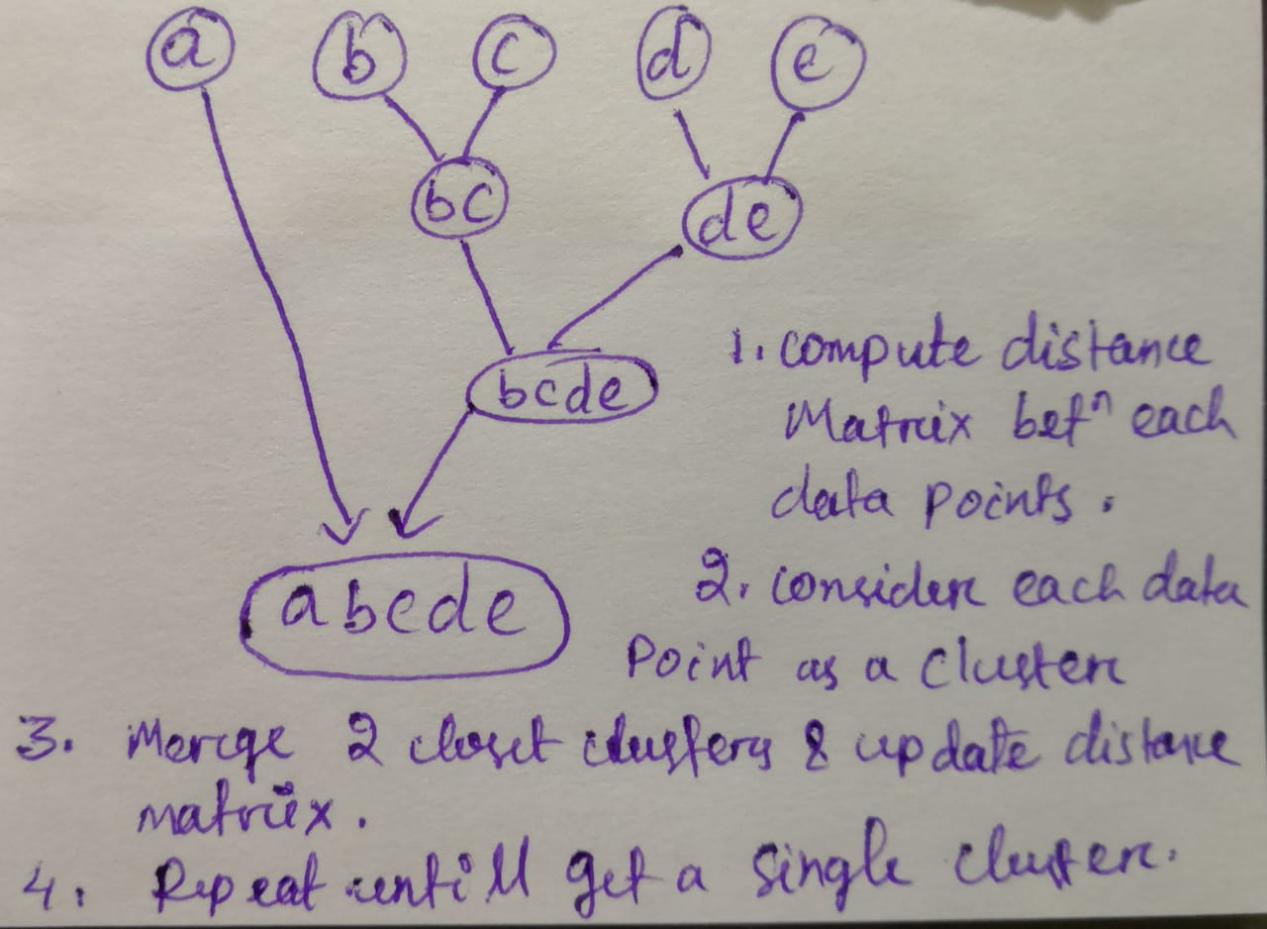 a b c d e
bc de
bcde
1. compute distance
Matrix betn each
data points.
abcde
2. consider each data
Point as a cluster
3. Merge 2 closet clusters & update distance
matrix.
4. Repeat untill get a single cluster.